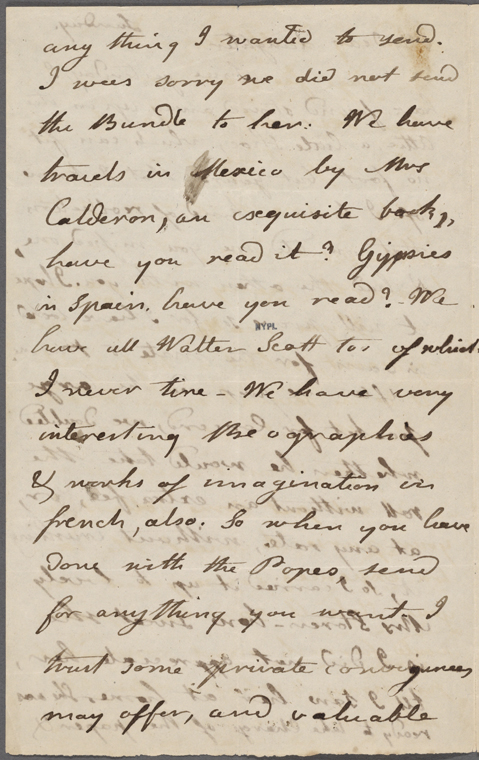 any thing I wanted to send.
I was sorry we did not send
the Bundle to her. We have
travels in Mexico by Mrs
Calderon, an exquisite book,
have you read it? Gypsies
in Spain. have you read? We
NYPL
have all Walter Scott too of which
I never tire - We have very
interesting Beographies
& works of imagination in
french, also. So when you have
done with the Popes, send
for anything you want. I
trust some private conveyances
may offer, and valuable